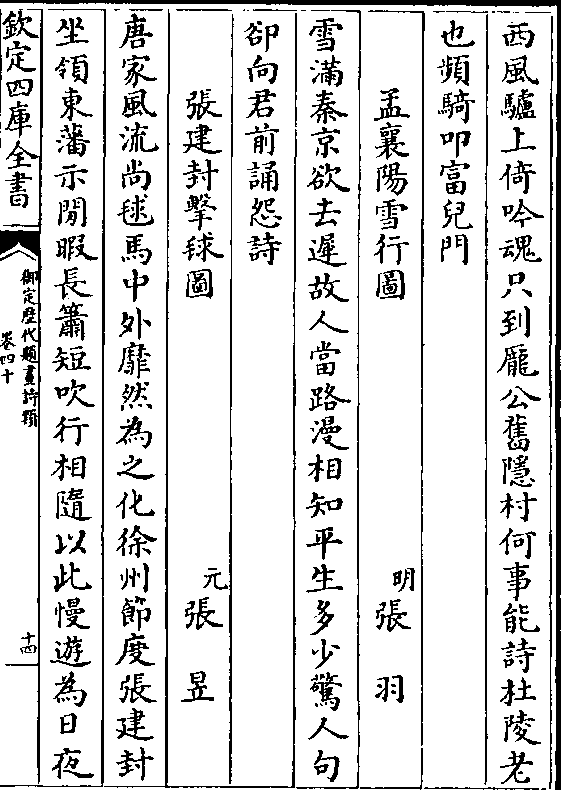 西風驢上倚吟魂只到龐公舊隱村何事能詩杜陵老
也頻騎叩富兒門
孟襄陽雪行圖
明張羽
雪滿秦京欲去遲故人當路漫相知平生多少驚人句
卻向君前誦怨詩
張建封擊毬圖
元張昱
唐家風流尚毬馬中外靡然為之化徐州節度張建封
坐領東藩示閒暇長簫短吹行相隨以此慢遊為日夜
欽定四庫全書
御定歷代題畫詩類
卷四十
十四